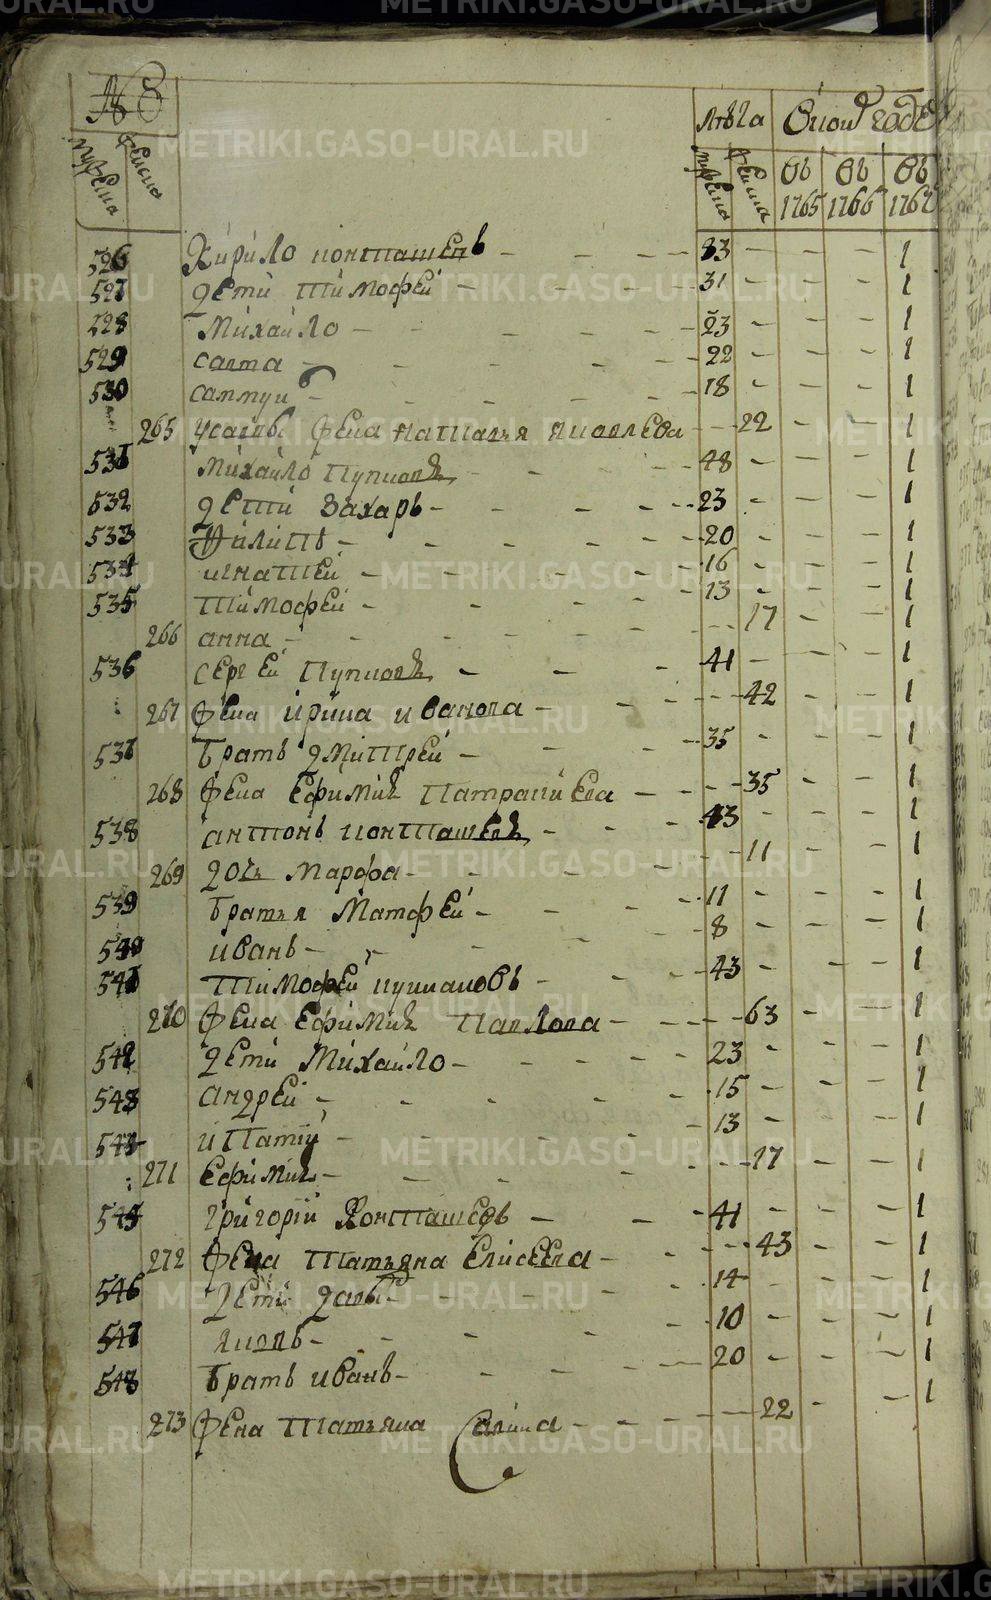 №
Лѣта
мужеска
женска
мужеска
женска
въ 1765
въ 1766
въ 1767
526 Кирило контяшевъ - - - - 33 - - - 1
527 дети тимофей - - - - 31 - - - 1
528 михайло - - - - 23 - - - 1
529 савта - - - - 22 - - - 1
530 - - - - 18 - - - 1
265 жена наталья яковлева - - 22 - - 1
531 михайло пупковъ - - - 48 - - - 1
532 дети захаръ - - - - 23 - - - 1
533 филипъ - - - - 20 - - - 1
534 игнатей - - - - 16 - - - 1
535 тимофей - - - - 13 - - - 1
266 анна - - - - 17 - - 1
536 сергей пупковъ - - - 41 - - - 1
267 жена ирина иванова - - - 42 - - 1
537 братъ дмитрей - - - 35 - - - 1
268 жена ефимия - - - 35 - - 1
538 антонъ конташевъ - - - 43 - - - 1
269 дочь марфа - - - - 11 - - 1
539 братья матфей - - - 11 - - - 1
540 иванъ - - - - 8 - - - 1
541 тимофей - - - 43 - - - 1
270 жена ефимия павлова - - - 63 - - 1
542 дети михайло - - - 23 - - - 1
543 андрей - - - - 15 - - - 1
544 ипатий - - - - 13 - - - 1
271 ефимия - - - - 17 - - 1
545 григорий конташевъ - - - 41 - - - 1
272 жена татьяна елисеева - - - 43 - - 1
546 дети - - - 14 - - - 1
547 яковъ - - - - 10 - - - 1
548 братъ иванъ - - - 20 - - - 1
273 жена татьяна савина - - - 22 - - 1
METRIKI.GASO-URAL.RU